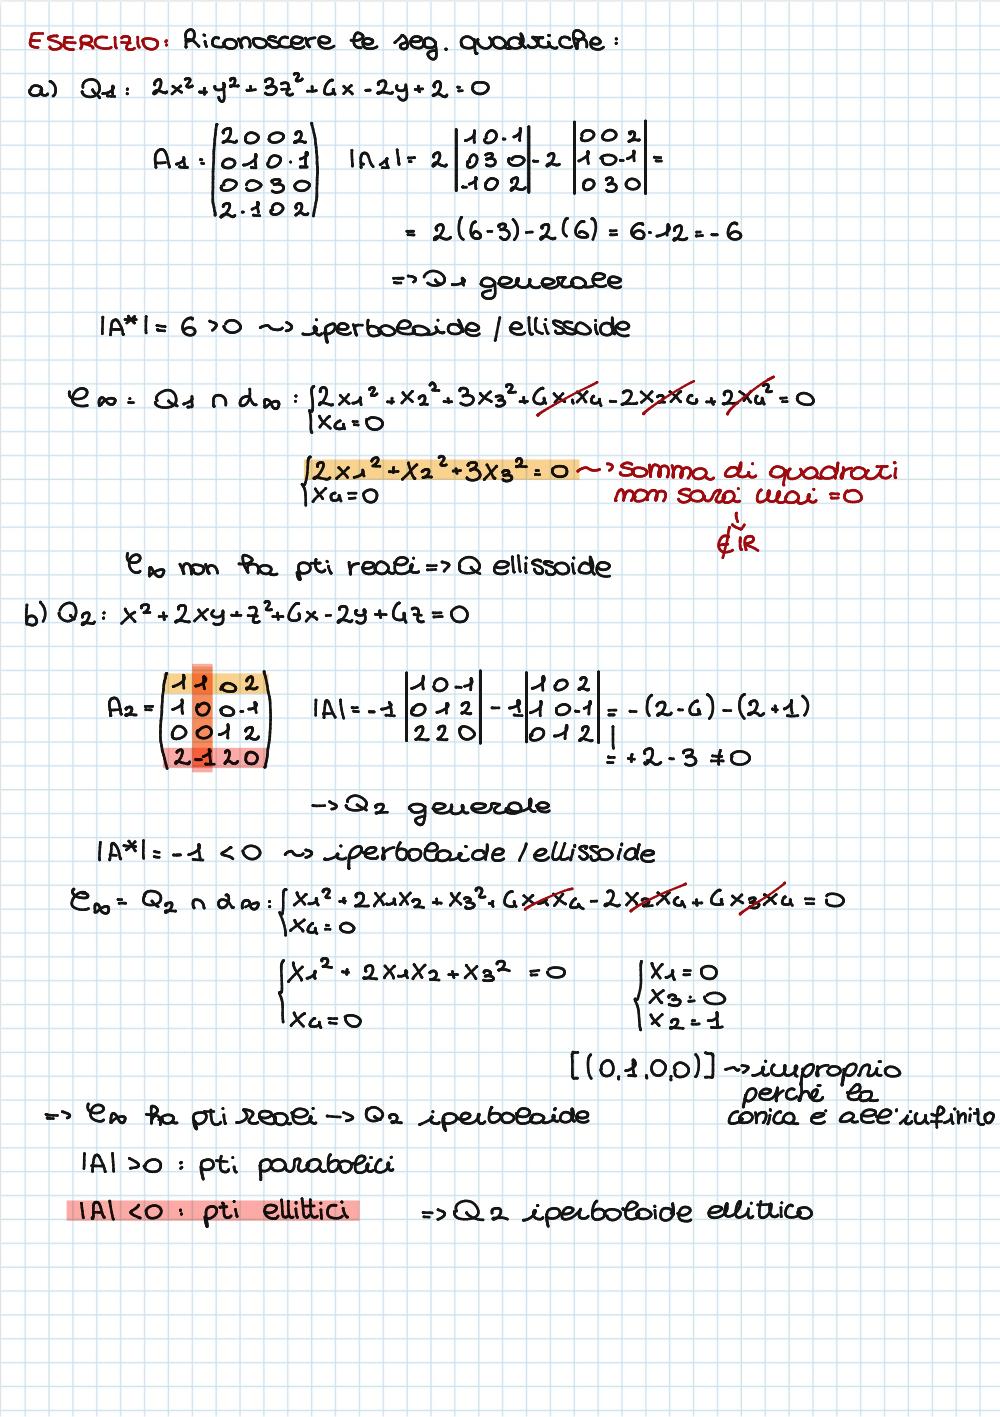 ESERCIZIO: Riconoscere le seg. quadriche:
a) Q1: 2x²+y²+3z²+4x-2y+2=0
A1 = (2 0 0 2 |A1| = 2 |1 0 -1| - 2 |0 0 2| =
0 1 0 -1 |0 3 0| |1 0 -1|
0 0 3 0 |-1 0 2| |0 3 0|
2 -1 0 2)
= 2(6-3)-2(6) = 6-12=-6
=> Q1 generale
|A*|= 6 >0 ~> iperboloide / ellissoide
C∞ = Q1 ∩ α∞: {2x1²+x2²+3x3²+4x1x4-2x2x4+2x4²=0
x4=0
{2x1²+x2²+3x3²=0 ~> somma di quadrati
x4=0 non sarà mai =0
∉ IR
C∞ non ha pti reali => Q ellissoide
b) Q2: x²+2xy+z²+4x-2y+4z=0
A2 = (1 1 0 2 |A| = -1 |1 0 -1| - 1 |1 0 2| = -(2-4)-(2+1)
1 0 0 -1 |0 1 2| |1 0 -1|
0 0 1 2 |2 2 0| |0 1 2|
2 -1 2 0) = +2-3 ≠0
-> Q2 generale
|A*|= -1 <0 ~> iperboloide / ellissoide
C∞ = Q2 ∩ α∞: {x1²+2x1x2+x3²+4x1x4-2x2x4+4x3x4=0
x4=0
{x1²+2x1x2+x3² =0 {x1=0
x3=0
x4=0 x2=1
[(0,1,0,0)] ~> improprio
perché la
=> C∞ ha pti reali -> Q2 iperboloide conica è all'infinito
|A| >0 : pti parabolici
|A| <0 : pti ellittici => Q2 iperboloide ellittico